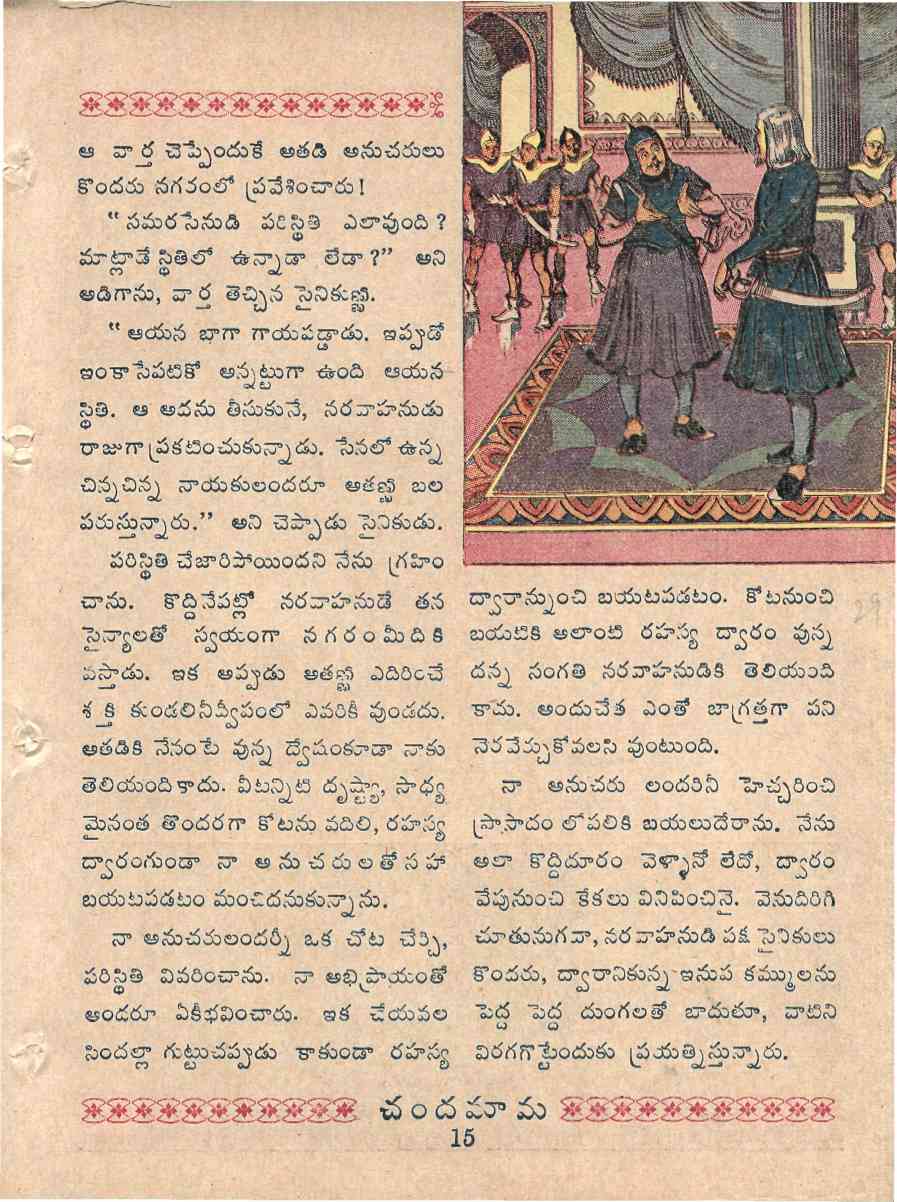 ఆ వార్త చెప్పేందుకే అతడి అనుచరులు
కొందరు నగరంలో ప్రవేశించారు!
“సమరసేనుడి పరిస్థితి ఎలావుంది?
మాట్లాడే స్థితిలో ఉన్నాడా లేడా?” అని
అడిగాను, వార్త తెచ్చిన సైనికుణ్ణి.
“ఆయన బాగా గాయపడ్డాడు. ఇప్పుడో
ఇంకాసేపటికో అన్నట్టుగా ఉంది ఆయన
స్థితి. ఆ అదను తీసుకునే, నరవాహనుడు
రాజుగా ప్రకటించుకున్నాడు. సేనలో ఉన్న
చిన్నచిన్న నాయకులందరూ అతణ్ణి బల
పరుస్తున్నారు.” అని చెప్పాడు సైనికుడు.
పరిస్థితి చేజారిపోయిందని నేను గ్రహిం
చాను. కొద్దిసేపట్లో నరవాహనుడే తన
సైన్యాలతో స్వయంగా నగరంమీదికి
వస్తాడు. ఇక అప్పుడు అతణ్ణి ఎదిరించే
శక్తి కుండలినీద్వీపంలో ఎవరికీ వుండదు.
అతడికి నేనంటే వున్న ద్వేషంకూడా నాకు
తెలియందికాదు. వీటన్నిటి దృష్ట్యా, సాధ్య
మైనంత తొందరగా కోటను వదిలి, రహస్య
ద్వారంగుండా నా అనుచరులతోసహా
బయటపడటం మంచిదనుకున్నాను.
నా అనుచరులందర్నీ ఒక చోట చేర్చి,
పరిస్థితి వివరించాను. నా అభిప్రాయంతో
అందరూ ఏకీభవించారు. ఇక చేయవల
సిందల్లా గుట్టుచప్పుడు కాకుండా రహస్య
ద్వారాన్నుంచి బయటపడటం. కోటనుంచి
బయటికి అలాంటి రహస్య ద్వారం వున్న
దన్న సంగతి నరవాహనుడికి తెలియంది
కాదు. అందుచేత ఎంతో జాగ్రత్తగా పని
నెరవేర్చుకోవలసి వుంటుంది.
నా అనుచరు లందరినీ హెచ్చరించి
ప్రాసాదం లోపలికి బయలుదేరాను. నేను
అలా కొద్దిదూరం వెళ్ళానో లేదో, ద్వారం
వేపునుంచి కేకలు వినిపించినై. వెనుదిరిగి
చూతునుగదా, నరవాహనుడి పక్ష సైనికులు
కొందరు, ద్వారానికున్న ఇనుప కమ్ములను
పెద్ద పెద్ద దుంగలతో బాదుతూ, వాటిని
విరగగొట్టేందుకు ప్రయత్నిస్తున్నారు.
29
చందమామ
15